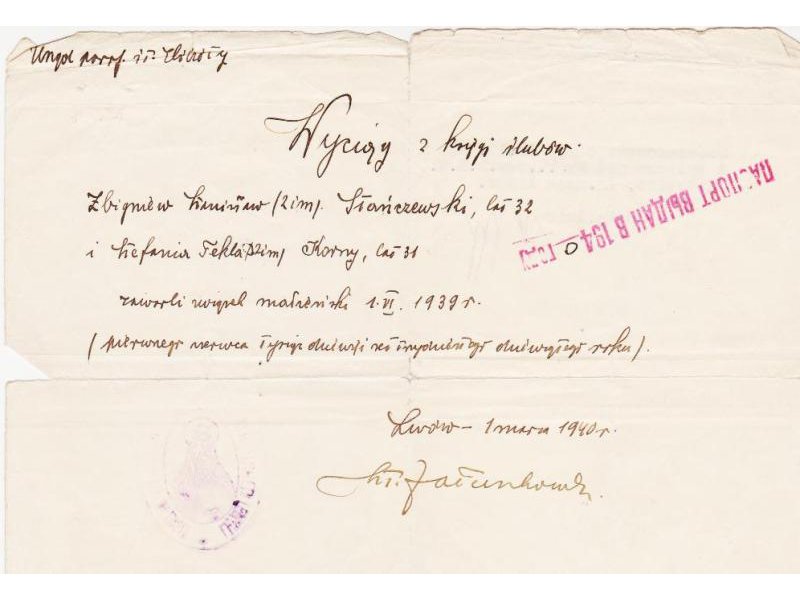 Urząd paraf. św. Elżbiety
Wyciąg z księgi ślubów.
ПАСПОРТ ВЫДАН В 1940 ГОДУ
Zbigniew Stanisław (2 im). Stańczewski, lat 32
i Stefania Tekla (2 im) Korny, lat 31
zawarli związek małżeński 1.VI. 1939 r.
(pierwszego czerwca tysiąc dziewięćset trzydziestego dziewiątego roku).
Lwów – 1 marca 1940 r.